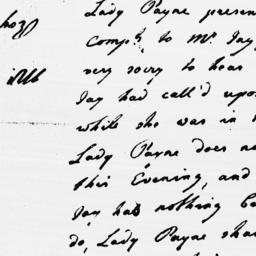 Lady Payne presen
Comp.ts to Mr. Jay
very sorry to hear
Jay had call'd upo
while she was in
Lady Payne does no
this Evening, and
Jay has nothing be
do, Lady Payne sha